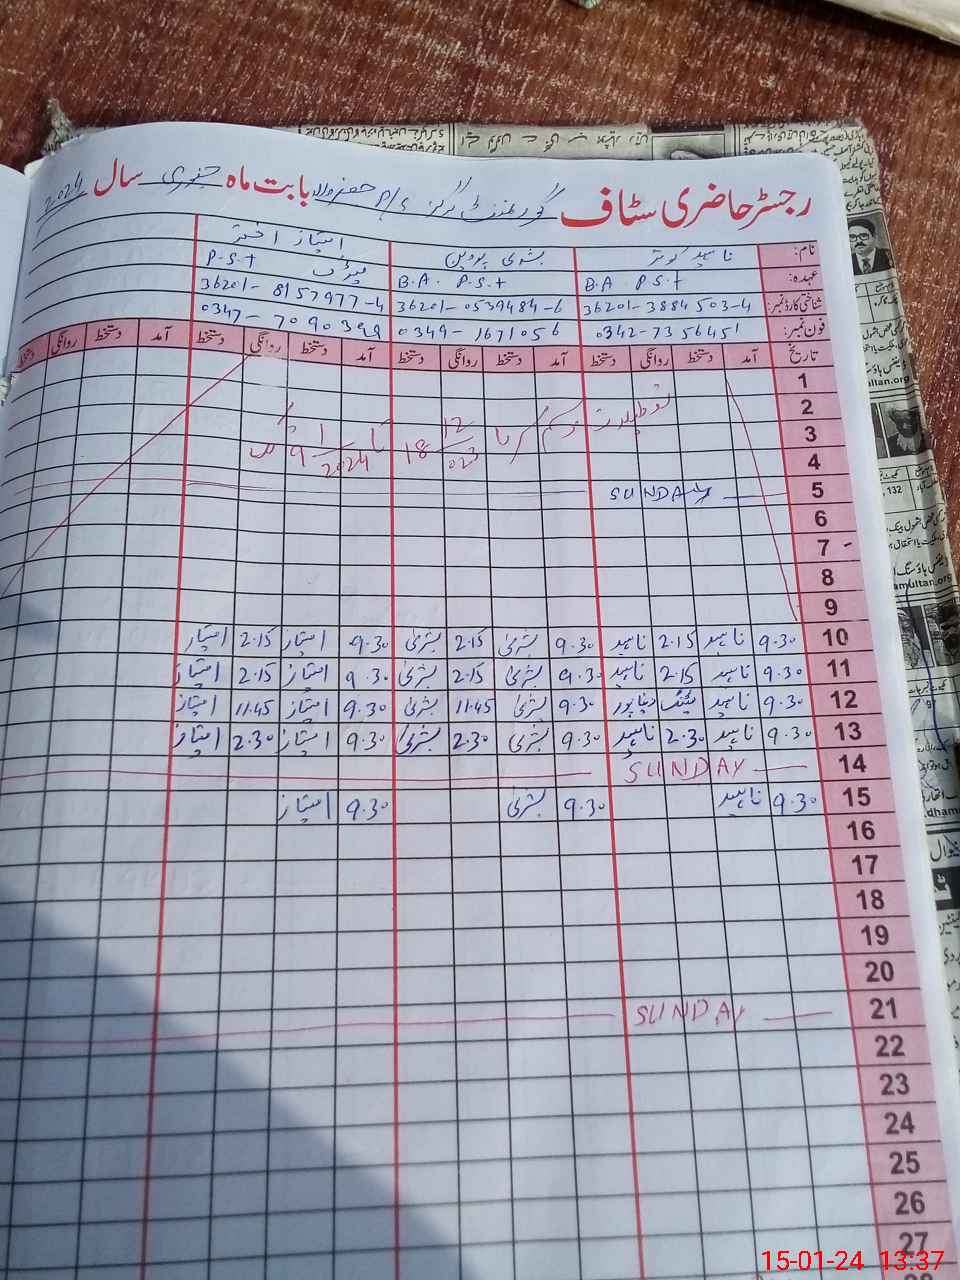 رجسٹر حاضری سٹاف گورنمنٹ گرلز P/S بابت ماہ جنوری سال 2024
نام: ناہید کوثر بشریٰ پروین امتیاز اختر
عہدہ: B.A. P.S.T B.A. P.S.T P.S.T
شناختی کارڈ نمبر: 36201-3884503-4 36201-0539484-6 36201-8157977-4
فون نمبر: 0342-7356451 0349-1671056 0347-7090399
تاریخ آمد دستخط روانگی دستخط آمد دستخط روانگی دستخط آمد دستخط روانگی دستخط آمد دستخط روانگی دستخط
1
2
3 تعطیلات موسم گرما 18 12 023 تا 9 1 2024
4
5 SUNDAY
6
7
8
9
10 9.30 ناہید 2.15 ناہید 9.30 بشریٰ 2.15 بشریٰ 9.30 امتیاز 2.15 امتیاز
11 9.30 ناہید 2.15 ناہید 9.30 بشریٰ 2.15 بشریٰ 9.30 امتیاز 2.15 امتیاز
12 9.30 ناہید میٹنگ دنیاپور 9.30 بشریٰ 11.45 بشریٰ 9.30 امتیاز 11.45 امتیاز
13 9.30 ناہید 2.30 ناہید 9.30 بشریٰ 2.30 بشریٰ 9.30 امتیاز 2.30 امتیاز
14 SUNDAY
15 9.30 ناہید 9.30 بشریٰ 9.30 امتیاز
16
17
18
19
20
21 SUNDAY
22
23
24
25
26
27
15-01-24 13:37